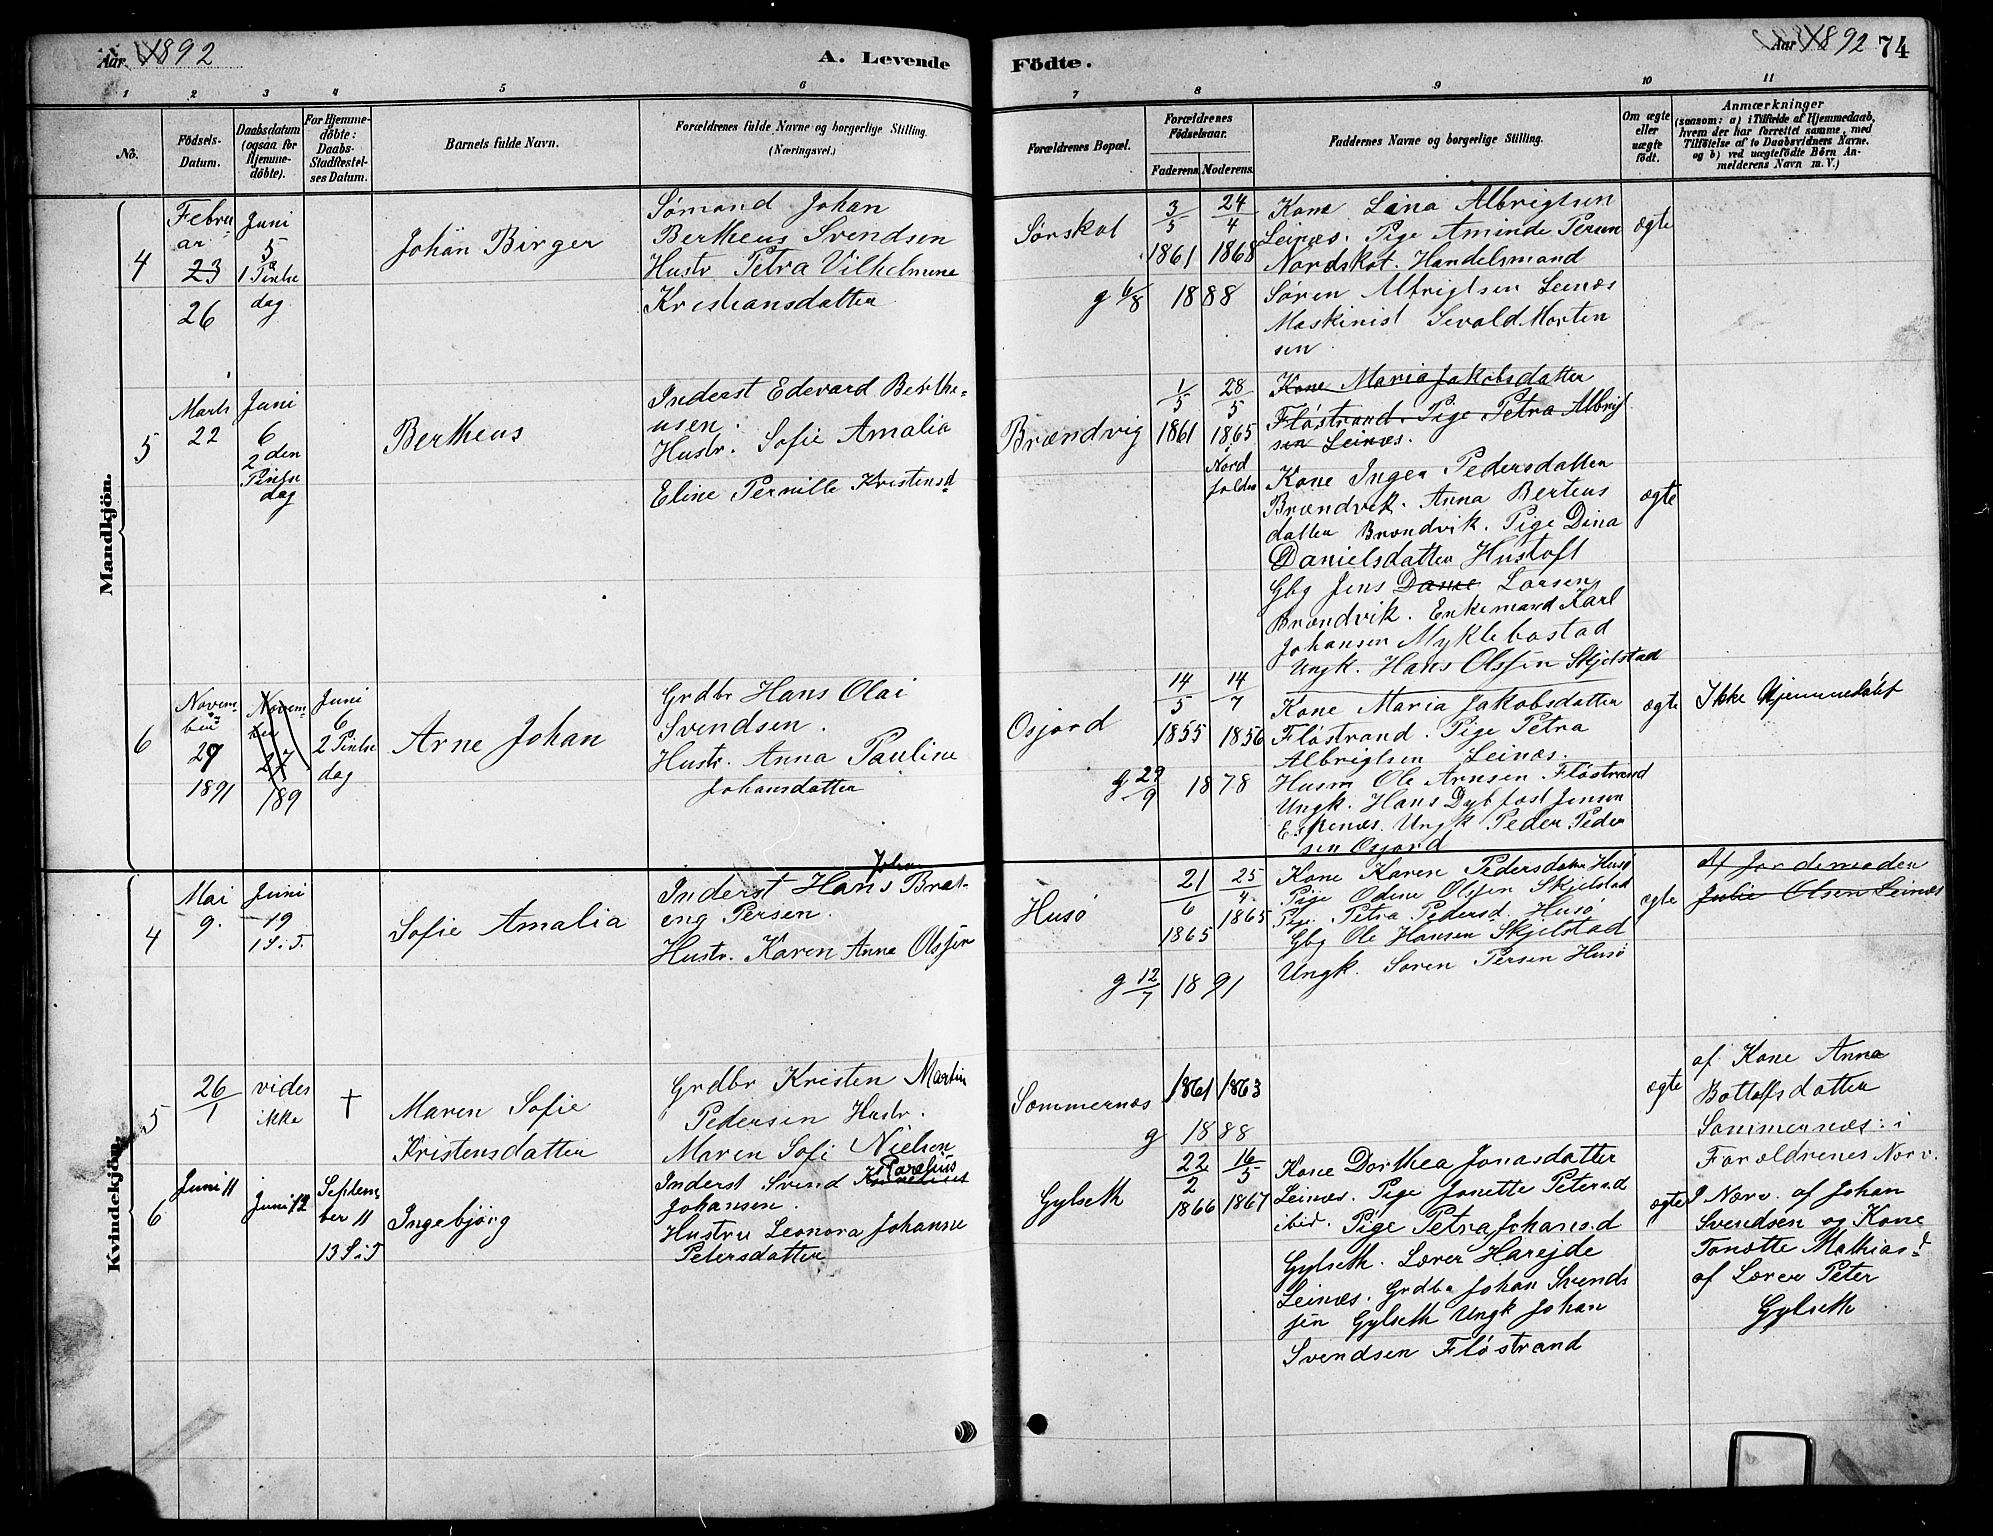 Aar 1892
A. Levende
Födte.
Aar 1892 74
1 2 3 4 5 6 7 8 9 10 11
No.
Födsels-
Datum.
Daabsdatum
(ogsaa for
Hjemme-
döbte).
For Hjemme-
döbte:
Daabs-
Stadfæstel-
ses Datum.
Barnets fulde Navn.
Forældrenes fulde Navne og borgerlige Stilling.
(Næringsvei.)
Forældrenes Bopæl.
Forældrenes
Födselsaar.
Faderens Moderens.
Faddernes Navne og borgerlige Stilling.
Om ægte
eller
uægte
födt.
Anmærkninger
(saasom: a) i Tilfælde af Hjemmedaab,
hvem der har forrettet samme, med
Tilföielse af to Daabsvidners Navne,
og b) ved uægtefödte Börn An-
melderens Navn m. V.)
Mandkjön.
4
Febru
ar
23
26
Juni
5
1 Pintse
dag
Johan Birger
Sømand Johan
Bertheus Svendsen
Hustr Petra Vilhelmine
Kristiansdatter
Sørskot
3/5
1861
24/4
1868
g 6/8 1888
Kone Lina Albrigtsen
Leinæs. Pige Aminde Persen
Nordskot. Handelsmand
Søren Albrigtsen Leinæs
Maskinist Sevald Morten
sen
ægte
5
Marts
22
Juni
6
2den
Pintse
dag
Bertheus
Inderst Edevard Berthe-
usen.
Hustr. Sofie Amalia
Eline Pernille Kristensd
Brændvig
1/5
1861
28/5
1865
Nord
folden
Kone Maria Jakobsdatter
Fløstrand. Pige Petra Albrigt
sen Leinæs.
Kone Inger Pedersdatter
Brændvik. Anna Berteus
datter Brændvik. Pige Dina
Danielsdatter Hustoft
Gbg Jens Dane Larsen
Brændvik. Enkemand Karl
Johansen Myklebostad
Ungk. Hans Olsen Skjelstad
ægte
6
Novem-
ber
27
1891
Novem-
ber
27
189
Juni
6
2 Pintse
dag
Arne Johan
Grdbr Hans Olai
Svendsen.
Hustr. Anna Pauline
Johansdatter
Osjord
14/5
1855
14/7
1856
g 29/9 1878
Kone Maria Jakobsdatter
Fløstrand. Pige Petra
Albrigtsen Leinæs.
Husm Ole Arnsen. Fløstrand
Ungk. Hans Dybfost Jensen
Espenæs. Ungk Peder Peder
sen Osjord
ægte
Ikke Hjemmedøbt
Kvindekjön.
4
Mai
9.
Juni
19
1 S. i T.
Sofie Amalia
Johan
Inderst Hans Bræt-
eng Persen.
Hustr. Karen Anna Olsen
Husø
21/6
1865
25/4
1865
g 12/7 1891
Kone Karen Pedersdatter Husø
Pige Odine Olsen Skjelstad
Pige Petra Pedersd. Husø
Gbg Ole Hansen Skjelstad
Ungk. Søren Persen Husø
ægte
Af Jordemoden
Julie Olsen Leinæs
5
26/1
vides
ikke
†
Maren Sofie
Kristensdatter
Grdbr Kristen Martin
Pedersen Hustr.
Maren Sofi Nielsen
Sommernæs
1861 1863
g 1888
ægte
af Kone Anna
Bottolfsdatter
Sommernæs: i
Forældrenes Nærv.
6
Juni 11
Juni 12
Septem-
ber 11
13 S. i T
Ingebjørg
Inderst Svend Parelius
Johansen.
Hustru Leonora Johanne
Petersdatter
Gylseth
22/2
1866
16/5
1867
Kone Dorthea Jonasdatter
Leinæs. Pige Jonette Petersd
ibid. Pige Petra Johans.d
Gylseth. Lærer Harejde
Leinæs. Grdbr Johan Svends
sen Gylseth Ungk Johan
Svendsen Fløstrand
ægte
I Nærv. af Johan
Svendsen og Kone
Tonette Mathiasd
af Lærer Peter
Gylseth